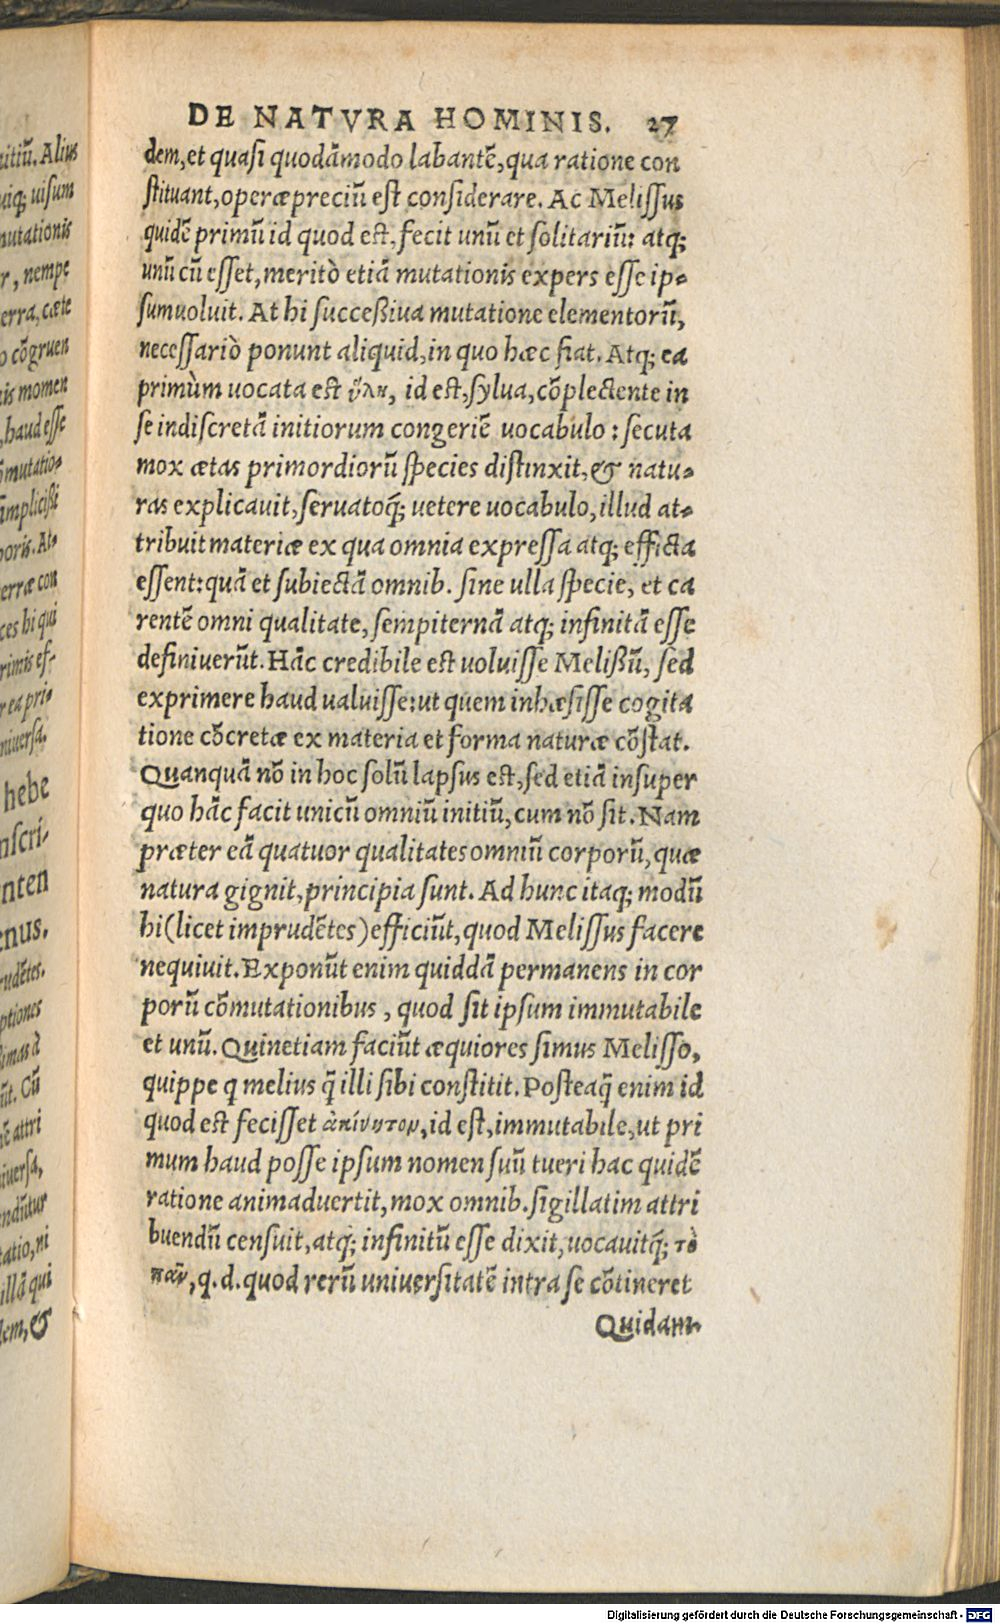 DE NATVRA HOMINIS. 27
dem, et quasi quodāmodo labantē, qua ratione con
stituant, operæpreciū est considerare. Ac Melissus
quidē primū id quod est, fecit unū et solitariū: atq;
unū cū esset, meritò etiā mutationis expers esse ip-
sumuoluit. At hi successiua mutatione elementorū,
necessariò ponunt aliquid, in quo hæc fiat. Atq; ea
primùm uocata est ὕλη, id est, sylua, cōplectente in
se indiscretā initiorum congeriē uocabulo: secuta
mox ætas primordiorū species distinxit, & natu-
ras explicauit, seruatoq́; uetere uocabulo, illud at-
tribuit materiæ ex qua omnia expressa atq; efficta
essent: quā et subiectā omnib. sine ulla specie, et ca
rentē omni qualitate, sempiternā atq; infinitā esse
definiuerūt. Hāc credibile est uoluisse Melißū, sed
exprimere haud ualuisse: ut quem inhæsisse cogita
tione cōcretæ ex materia et forma naturæ cōstat.
Quanquā nō in hoc solū lapsus est, sed etiā insuper
quo hāc facit unicū omniū initiū, cum nō sit. Nam
præter eā quatuor qualitates omniū corporū, quæ
natura gignit, principia sunt. Ad hunc itaq; modū
hi (licet imprudētes) efficiūt, quod Melissus facere
nequiuit. Exponūt enim quiddā permanens in cor
porū cōmutationibus, quod sit ipsum immutabile
et unū. Quinetiam faciūt æquiores simus Melisso,
quippe q melius q̄ illi sibi constitit. Posteaq̄ enim id
quod est fecisset ἀκίνητον, id est, immutabile, ut pri
mum haud posse ipsum nomen suū tueri hac quidē
ratione animaduertit, mox omnib. sigillatim attri
buendū censuit, atq́; infinitū esse dixit, uocauitq́; τὸ
πᾶν, q. d. quod rerū uniuersitatē intra se cōtineret
Quidam
Digitalisierung gefördert durch die Deutsche Forschungsgemeinschaft - DFG